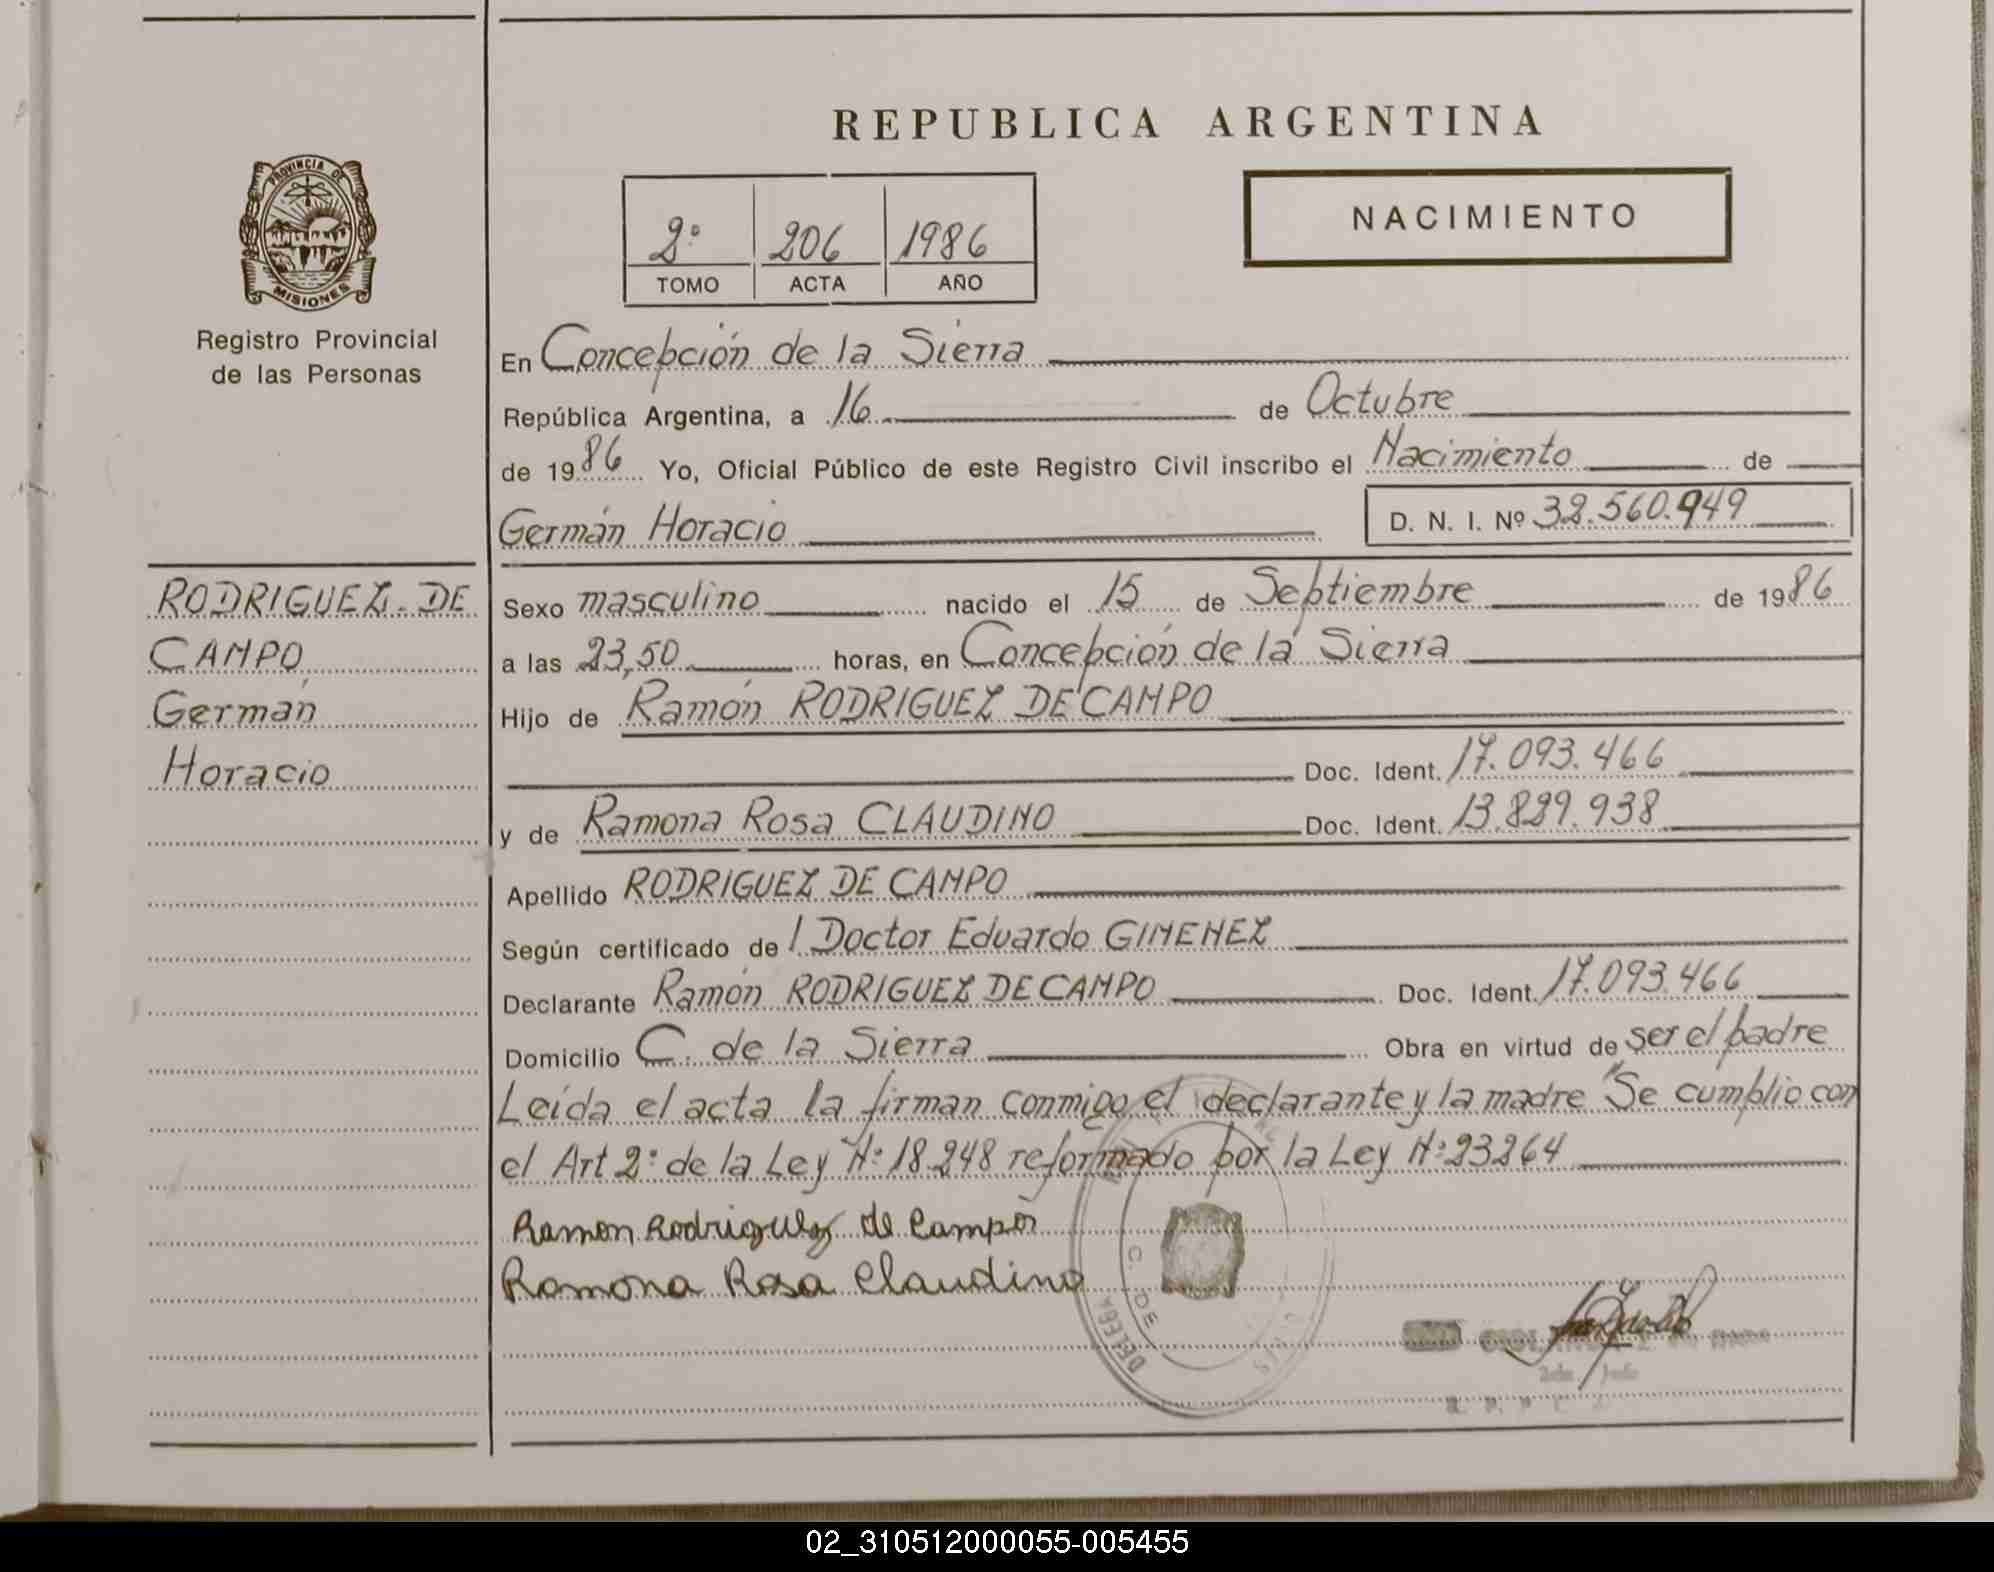 REPUBLICA ARGENTINA
PROVINCIA DE
MISIONES
Registro Provincial
de las Personas
2º 206 1986
TOMO ACTA AÑO
NACIMIENTO
En Concepción de la Sierra
República Argentina, a 16 de Octubre
de 1986 Yo, Oficial Público de este Registro Civil inscribo el Nacimiento de
Germán Horacio D. N. I. Nº 32.560.949
RODRIGUEZ DE
CAMPO
Germán
Horacio
Sexo masculino nacido el 15 de Septiembre de 1986
a las 23,50 horas, en Concepción de la Sierra
Hijo de Ramón RODRIGUEZ DE CAMPO
Doc. Ident. 17.093.466
y de Ramona Rosa CLAUDINO Doc. Ident. 13.829.938
Apellido RODRIGUEZ DE CAMPO
Según certificado de l Doctor Eduardo GIMENEZ
Declarante Ramón RODRIGUEZ DE CAMPO Doc. Ident. 17.093.466
Domicilio C. de la Sierra Obra en virtud de ser el padre
Leída el acta la firman conmigo el declarante y la madre "Se cumplio con
el Art 2º de la Ley Nº 18.248 reformado por la Ley Nº 23264
Ramon Rodriguez de Campo
Ramona Rosa Claudino
C. DE
DELEG
02_310512000055-005455